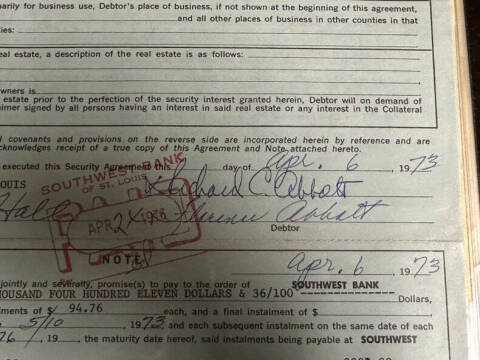 arily for business use, Debtor's place of business, if not shown at the beginning of this agreement,
and all other places of business in other counties in that
ies:
eal estate, a description of the real estate is as follows:
wners is
estate prior to the perfection of the security interest granted herein, Debtor will on demand of
imer signed by all persons having an interest in said real estate or any interest in the Collateral
d covenants and provisions on the reverse side are incorporated herein by reference and are
cknowledges receipt of a true copy of this Agreement and Note attached hereto.
executed this Security Agreement this day of Apr. 6, 1973
SOUTHWEST BANK
OF ST. LOUIS
OUIS
Richard C. Abbott
APR 2 1976
Florence Abbott
Debtor
NOTE
Apr. 6, 1973
jointly and severally, promise(s) to pay to the order of SOUTHWEST BANK
HOUSAND FOUR HUNDRED ELEVEN DOLLARS & 36/100 Dollars,
lments of $ 94.76 each, and a final instalment of $
5/10 1973, and each subsequent instalment on the same date of each
76, 19 the maturity date hereof, said instalments being payable at SOUTHWEST